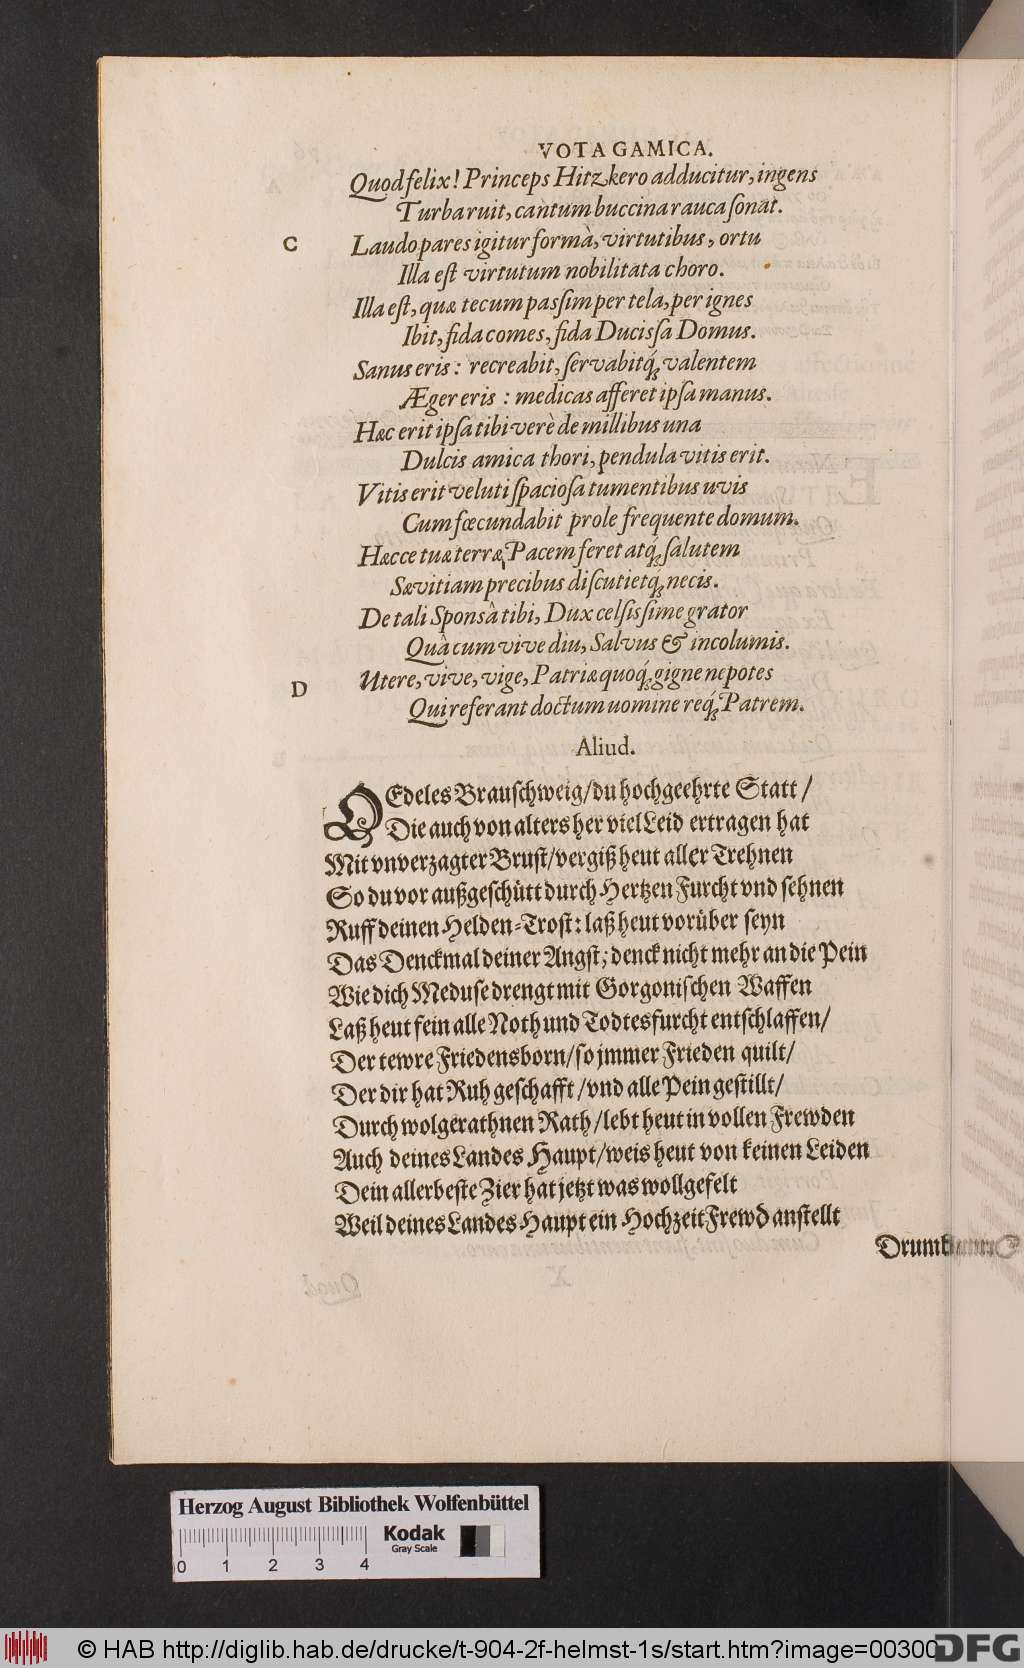 VOTA GAMICA.
Quod felix! Princeps Hitzkero adducitur, ingens
Turba ruit, cantum buccina rauca ſonat.
C
Laudo pares igitur formâ, virtutibus, ortu
Illa eſt virtutum nobilitata choro.
Illa eſt, quæ tecum paſsim per tela, per ignes
Ibit, fida comes, fida Duciſsa Domus.
Sanus eris: recreabit, ſervabitq́; valentem
Æger eris: medicas afferet ipſa manus.
Hæc erit ipſa tibi verè de millibus una
Dulcis amica thori, pendula vitis erit.
Vitis erit veluti ſpacioſa tumentibus uvis
Cum fœcundabit prole frequente domum.
Hæcce tuæ terræ, Pacem feret atq́; ſalutem
Sævitiam precibus diſcutietq́; necis.
De tali Sponsâ tibi, Dux celſiſsime grator
Quâ cum vive diu, Salvus & incolumis.
D
Utere, vive, vige, Patriæ quoq́; gigne nepotes
Qui referant doctum uomine req́; Patrem.
Aliud.
O Edeles Brauſchweig/ du hochgeehrte Statt/
Die auch von alters her viel Leid ertragen hat
Mit vnverzagter Bruſt/ vergiß heut aller Trehnen
So du vor außgeſchütt durch Hertzen Furcht vnd ſehnen
Ruff deinen Helden-Troſt: laß heut vorüber ſeyn
Das Denckmal deiner Angſt; denck nicht mehr an die Pein
Wie dich Meduſe drengt mit Gorgoniſchen Waffen
Laß heut fein alle Noth und Todtesfurcht entſchlaffen/
Der tewre Friedensborn/ ſo jmmer Frieden quilt/
Der dir hat Ruh geſchafft/ vnd alle Pein geſtillt/
Durch wolgerathnen Rath/ lebt heut in vollen Frewden
Auch deines Landes Haupt/ weis heut von keinen Leiden
Dein allerbeſte Zier hat jetzt was wollgefelt
Weil deines Landes Haupt ein Hochzeit Frewd anſtellt
Herzog August Bibliothek Wolfenbüttel
Kodak
Gray Scale
0 1 2 3 4
© HAB http://diglib.hab.de/drucke/t-904-2f-helmst-1s/start.htm?image=00300
DFG